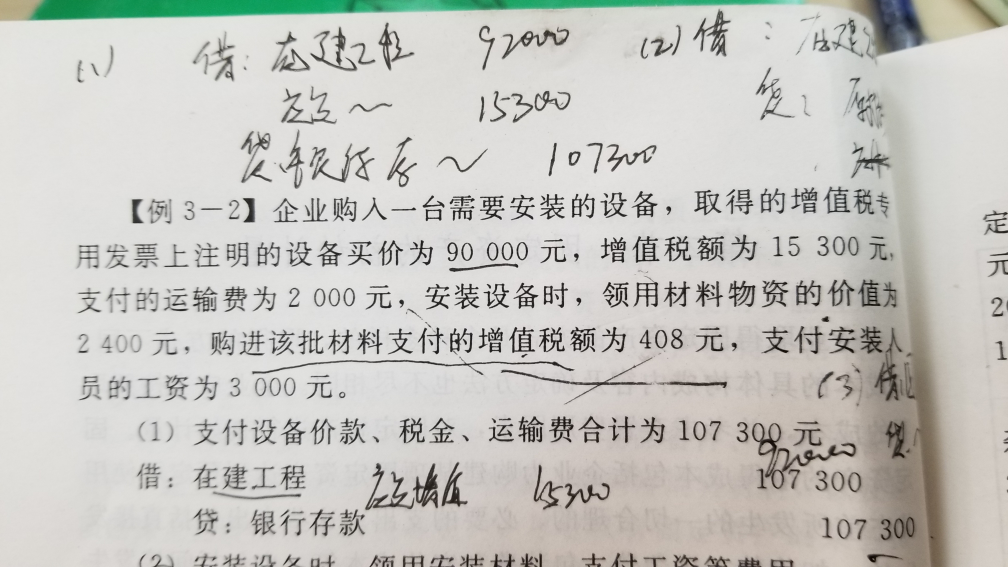 (1) 借：在建工程 92000 (2) 借：在建工
应交～ 15300 贷：原材料
贷：银行存～ 107300
【例 3－2】企业购入一台需要安装的设备，取得的增值税专
用发票上注明的设备买价为 90 000 元，增值税额为 15 300 元，
支付的运输费为 2 000 元，安装设备时，领用材料物资的价值为
2 400 元，购进该批材料支付的增值税额为 408 元，支付安装人
员的工资为 3 000 元。
(3) 借
(1) 支付设备价款、税金、运输费合计为 107 300 元
92000 贷
借：在建工程 应交增值 15300 107 300
贷：银行存款 107 300
(2) 安装设备时，领用安装材料，支付工资等费用
定
元